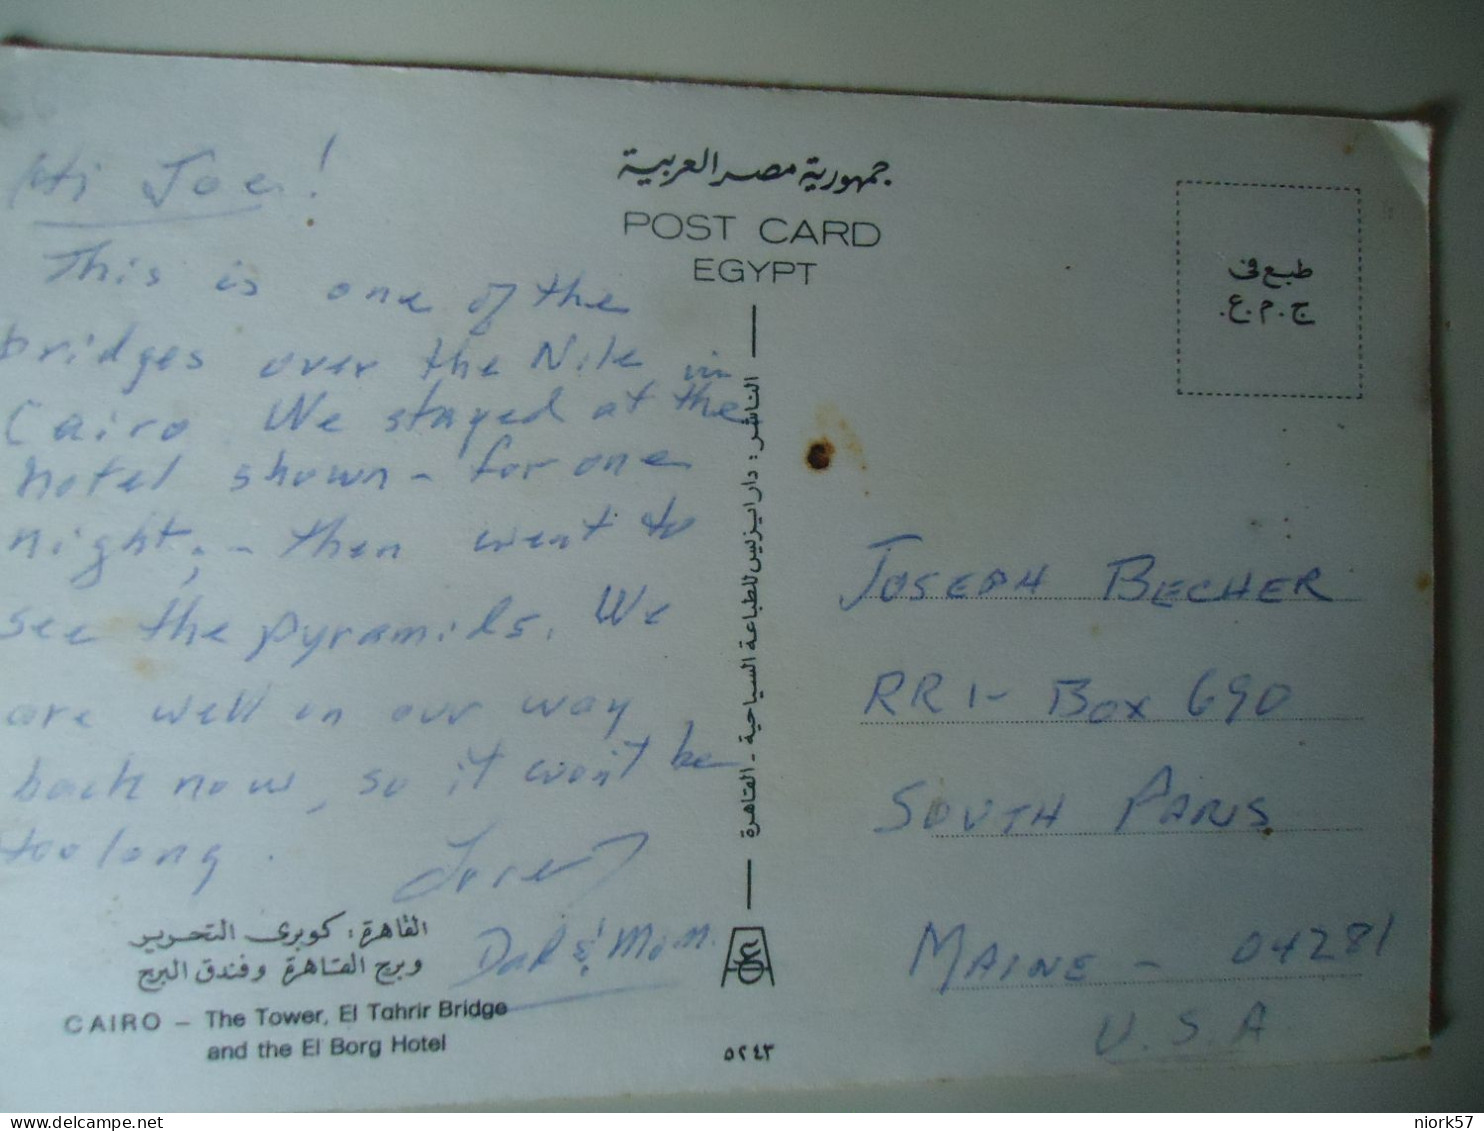 Hi Joe!
This is one of the
bridges over the Nile in
Cairo We stayed at the
hotel shown - for one
night; - then went to
see the pyramids. We
are well on our way
back now, so it won't be
too long.
Love
Dad & Mom.
القاهرة: كوبرى التحرير
وبرج القاهرة وفندق البرج
CAIRO – The Tower, El Tahrir Bridge
and the El Borg Hotel
جمهورية مصر العربية
POST CARD
EGYPT
الناشر: دار ايزيس للطباعة السياحية - القاهرة
٥٢٤٣
طبع فى
ج.م.ع.
JOSEPH BECHER
RR1- BOX 690
SOUTH PARIS
MAINE - 04281
U.S.A
niork57